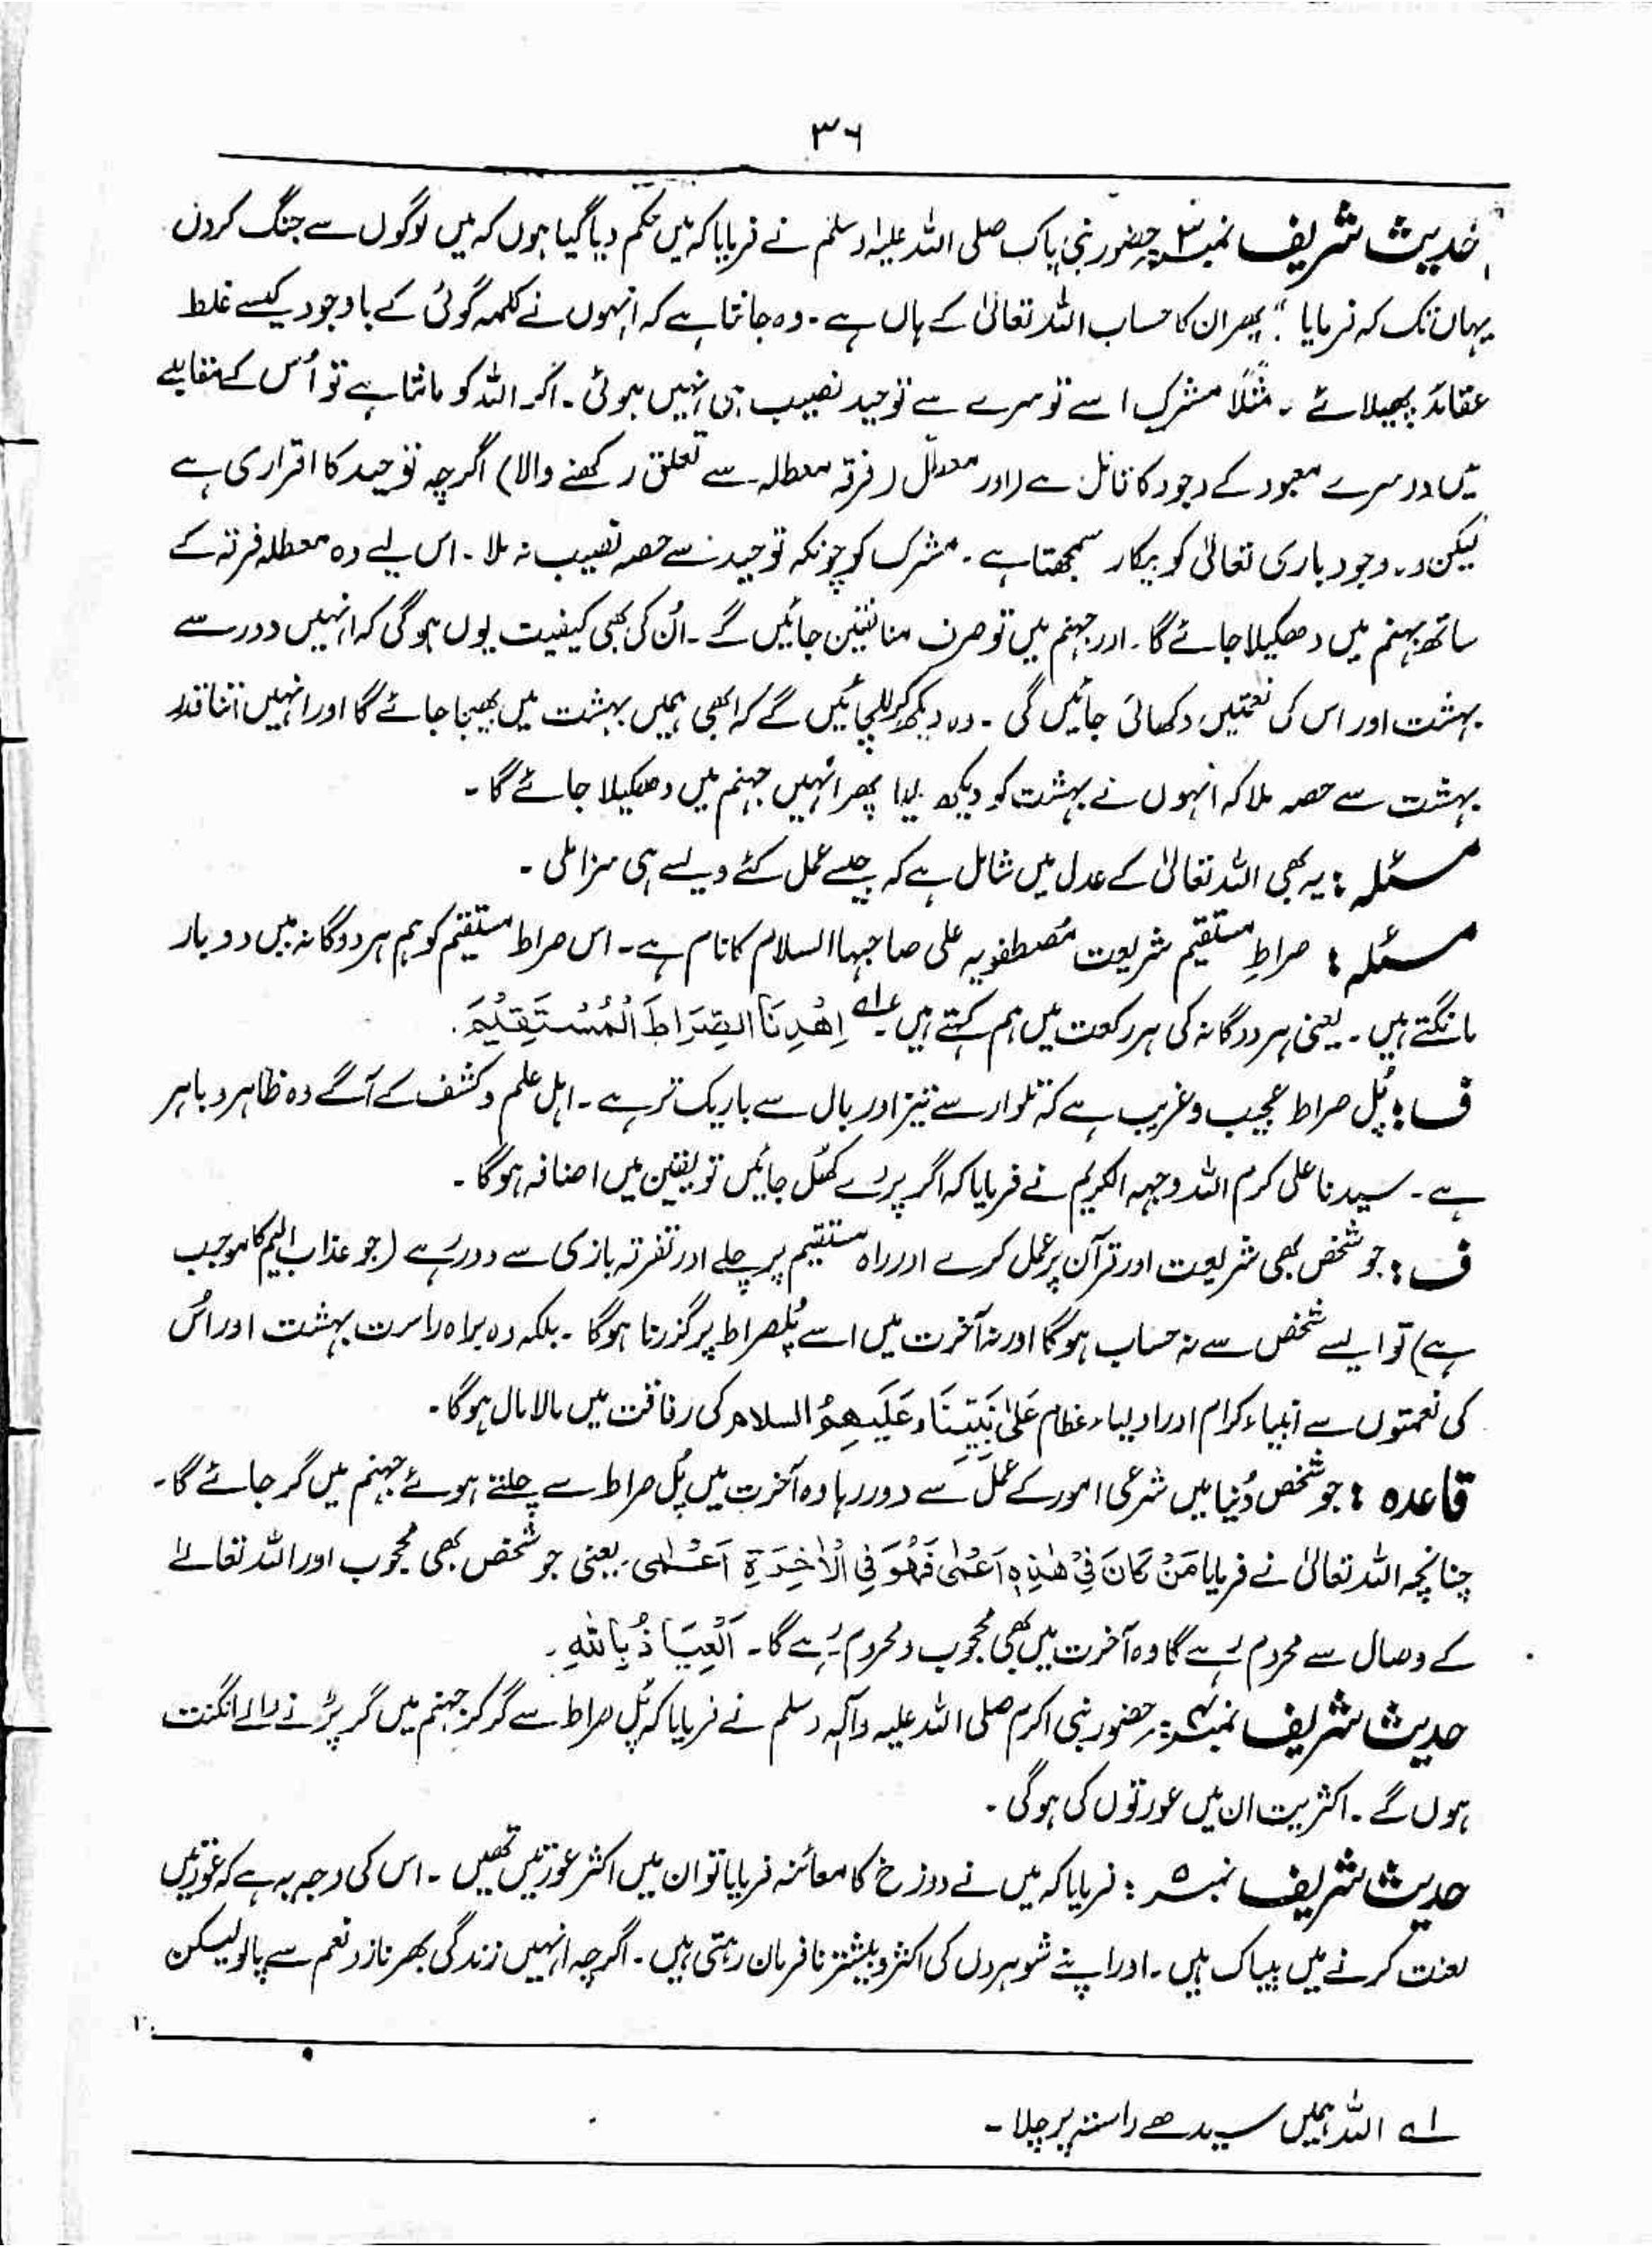 ۳۶
حدیث شریف نمبر۳: حضور نبی پاک صلی اللہ علیہ وسلم نے فرمایا کہ میں حکم دیا گیا ہوں کہ میں لوگوں سے جنگ کروں
یہاں تک کہ فرمایا "پھر ان کا حساب اللہ تعالیٰ کے ہاں ہے۔ وہ جانتا ہے کہ انہوں نے کلمہ گوئی کے باوجود کیسے غلط
عقائد پھیلائے۔ مثلاً مشرک اسے تو سرے سے توحید نصیب ہی نہیں ہوئی۔ اگر اللہ کو مانتا ہے تو اُس کے مقابلے
میں دوسرے معبود کے وجود کا قائل ہے (اور معطّل (فرقہ معطلہ سے تعلق رکھنے والا) اگرچہ توحید کا اقراری ہے
لیکن وہ وجود باری تعالیٰ کو بیکار سمجھتا ہے۔ مشرک کو چونکہ توحید سے حصہ نصیب نہ ملا۔ اس لیے وہ معطلہ فرقہ کے
ساتھ جہنم میں دھکیلا جائے گا۔ اور جہنم میں تو صرف منافقین جائیں گے۔ اُن کی بھی کیفیت یوں ہوگی کہ انہیں دور سے
بہشت اور اس کی نعمتیں دکھائی جائیں گی۔ وہ دیکھ کر للچائیں گے کہ ابھی ہمیں بہشت میں بھیجا جائے گا اور انہیں اتنا قدر
بہشت سے حصہ ملا کہ انہوں نے بہشت کو دیکھ لیا پھر انہیں جہنم میں دھکیلا جائے گا۔
مسئلہ: یہ بھی اللہ تعالیٰ کے عدل میں شامل ہے کہ جیسے عمل کئے ویسے ہی سزا ملی۔
مسئلہ: صراطِ مستقیم شریعت مُصطفویہ علی صاحبہا السلام کا نام ہے۔ اس صراط مستقیم کو ہم ہر دوگانہ میں دو بار
مانگتے ہیں۔ یعنی ہر دوگانہ کی ہر رکعت میں ہم کہتے ہیں۔ ۱؎ اِھْدِنَا الصِّرَاطَ الْمُسْتَقِیْمَ.
ف: پُل صراط عجیب و غریب ہے کہ تلوار سے تیز اور بال سے باریک تر ہے۔ اہل علم و کشف کے آگے وہ ظاہر و باہر
ہے۔ سیدنا علی کرم اللہ وجہہ الکریم نے فرمایا کہ اگر پردے کُھل جائیں تو یقین میں اضافہ ہوگا۔
ف: جو شخص بھی شریعت اور قرآن پر عمل کرے اور راہ مستقیم پر چلے اور تفرقہ بازی سے دور رہے (جو عذاب الیم کا موجب
ہے) تو ایسے شخص سے نہ حساب ہوگا اور نہ آخرت میں اسے پُلصراط پر گزرنا ہوگا۔ بلکہ وہ براہ راست بہشت اور اُس
کی نعمتوں سے انبیاء کرام اور اولیاء عظام عَلیٰ نَبِیِّنَا وَعَلَیْھِمُ السلام کی رفاقت میں مالا مال ہوگا۔
قاعدہ: جو شخص دُنیا میں شرعی امور کے عمل سے دور رہا وہ آخرت میں پُل صراط سے چلتے ہوئے جہنم میں گر جائے گا۔
چنانچہ اللہ تعالیٰ نے فرمایا مَنْ کَانَ فِیْ ھٰذِہٖ اَعْمٰی فَھُوَ فِی الْاٰخِرَۃِ اَعْمٰی۔ یعنی جو شخص بھی محجوب اور اللہ تعالےٰ
کے وصال سے محروم رہے گا وہ آخرت میں بھی محجوب و محروم رہے گا۔ اَلْعِیَاذُ بِاللّٰہِ۔
حدیث شریف نمبر۴: حضور نبی اکرم صلی اللہ علیہ وآلہ وسلم نے فرمایا کہ پُل صراط سے گر کر جہنم میں گر پڑنے والے انگنت
ہوں گے۔ اکثریت ان میں عورتوں کی ہوگی۔
حدیث شریف نمبر ۵: فرمایا کہ میں نے دوزخ کا معائنہ فرمایا تو ان میں اکثر عورتیں تھیں۔ اس کی وجہ یہ ہے کہ عورتیں
لعنت کرنے میں بیباک ہیں۔ اور اپنے شوہروں کی اکثر و بیشتر نافرمان رہتی ہیں۔ اگرچہ انہیں زندگی بھر ناز و نعم سے پالو لیکن
اے اللہ ہمیں سیدھے راستہ پر چلا۔